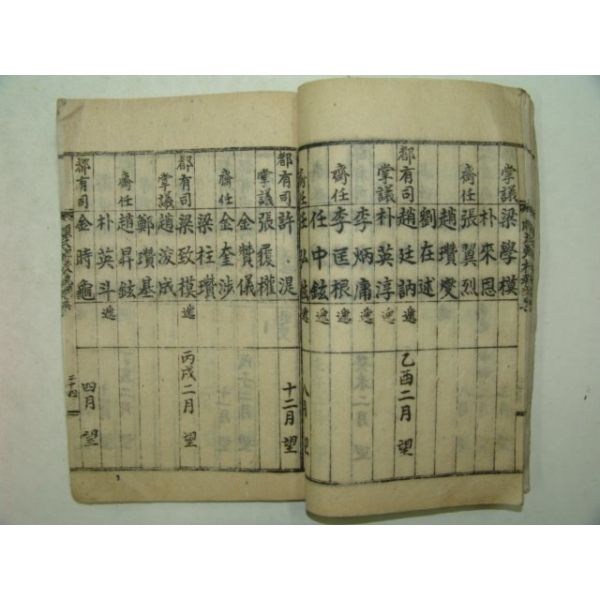 掌議梁學模
朴來恩
齋任張翼烈
趙瓚燮
劉在述
都有司趙廷訥遞 乙酉二月 望
掌議朴英淳遞
李炳庸遞
齋任李匡根遞
任中鉉遞
月 望
都有司許 湜 十二月 望
掌議張履權
金贊儀
齋任金奎涉
梁柱瓚
都有司梁致模遞 丙戌二月 望
掌議趙浚成
鄭瓚基
齋任趙昇鉉
朴英斗遞
都有司金時龜 四月 望
二十四